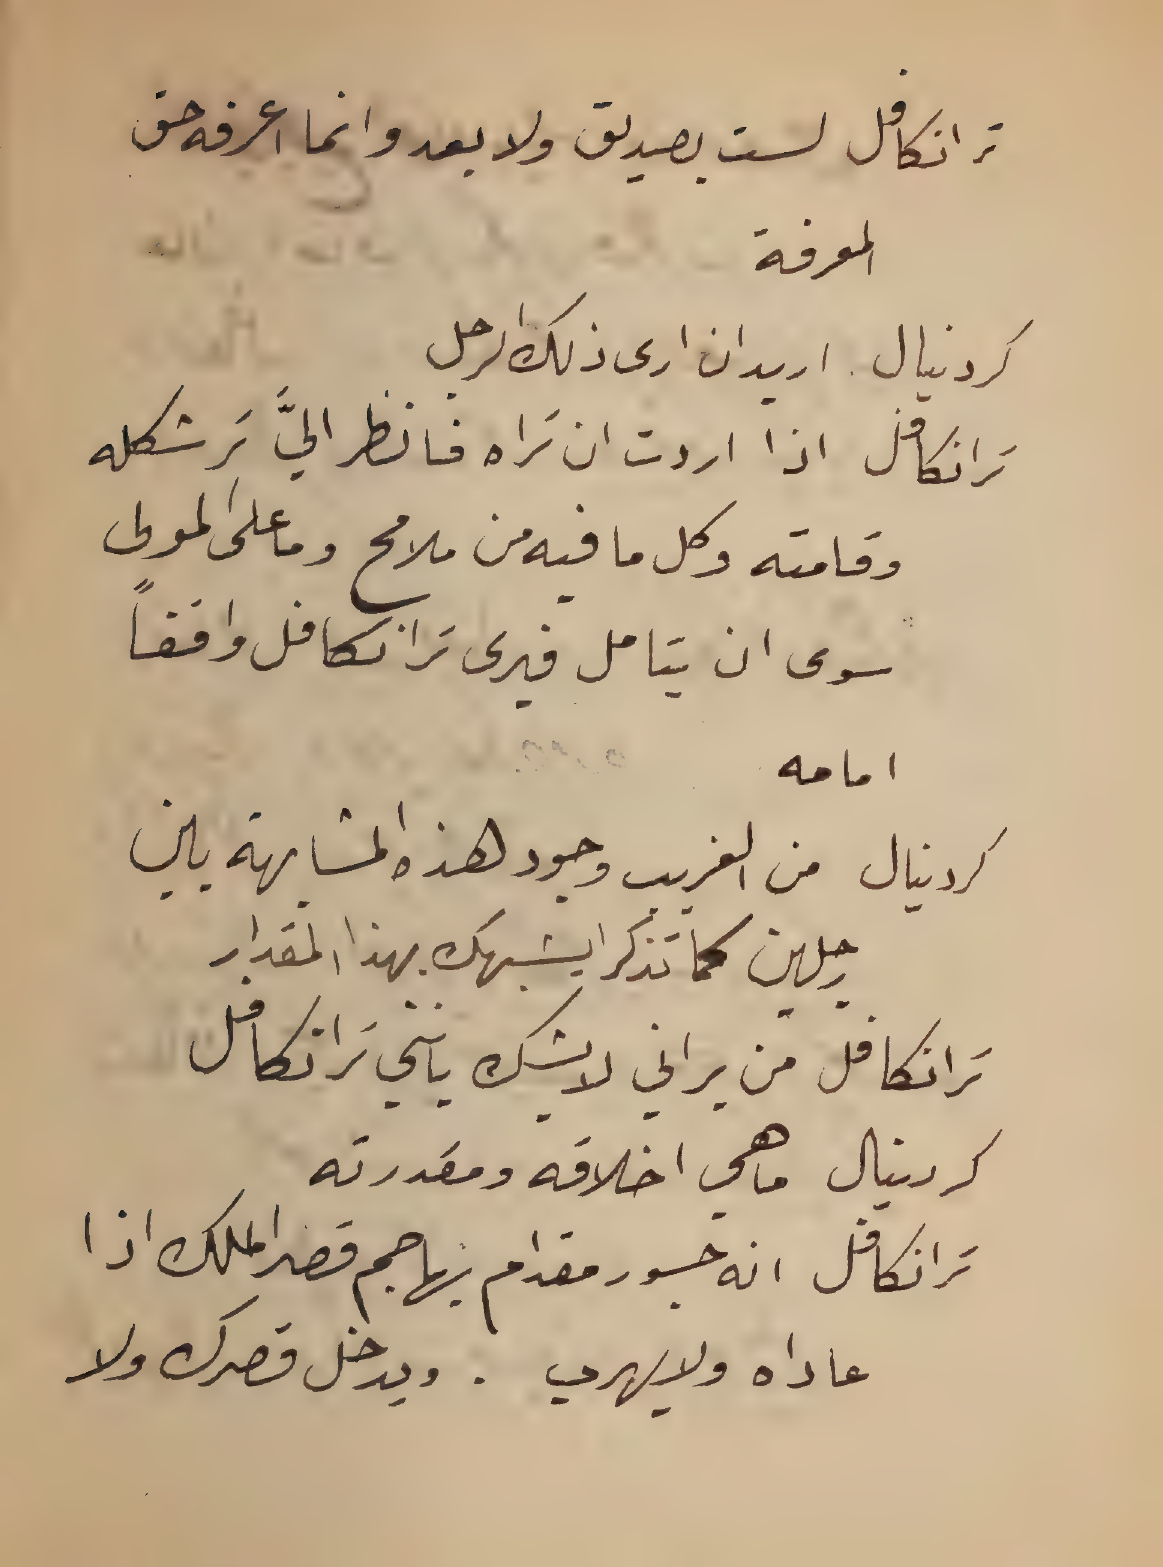 ترانكافل لست بصديق ولا بعد وانما اعرفه حق
المعرفة
كردنيال . اريد ان ارى ذلك الرجل
تَرانكافل اذا اردت ان تَراه فانظر اليَّ تَر شكله
وقامته وكل ما فيه من ملامح وما على المولى
سوى ان يتامل فيرى تَرانكافل واقفاً
امامه
كردنيال من الغريب وجود هذه المشابهة بين
رجلين كما تذكر ايشبهك بهذا المقدار
تَرانكافل من يراني لا يشك بانني تَرانكافل
كردنيال ما هي اخلاقه ومقدرته
تَرانكافل انه جسور مقدام يهاجم قصر الملك اذا
عاداه ولا يهرب . ويدخل قصرك ولا